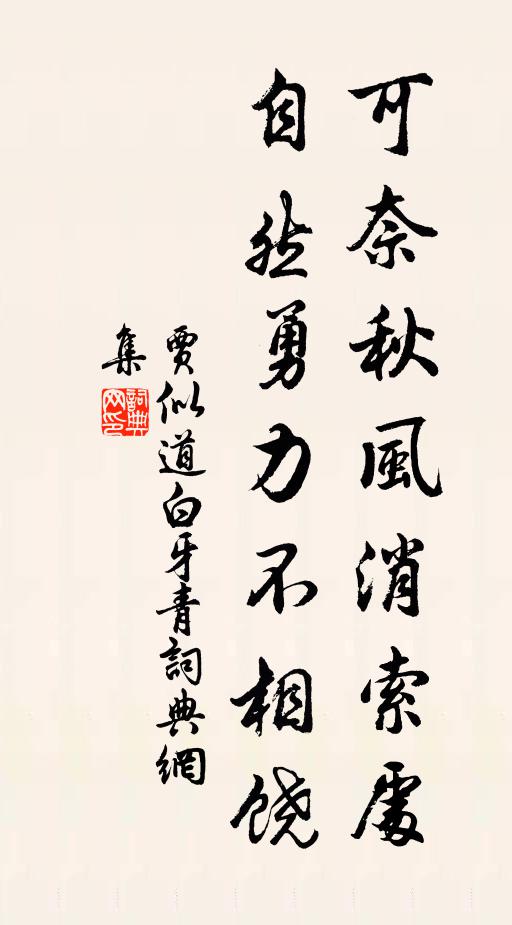 可奈秋風消索處
自然勇力不相饶
賈似道白牙青詞典網
集
詞典
网印